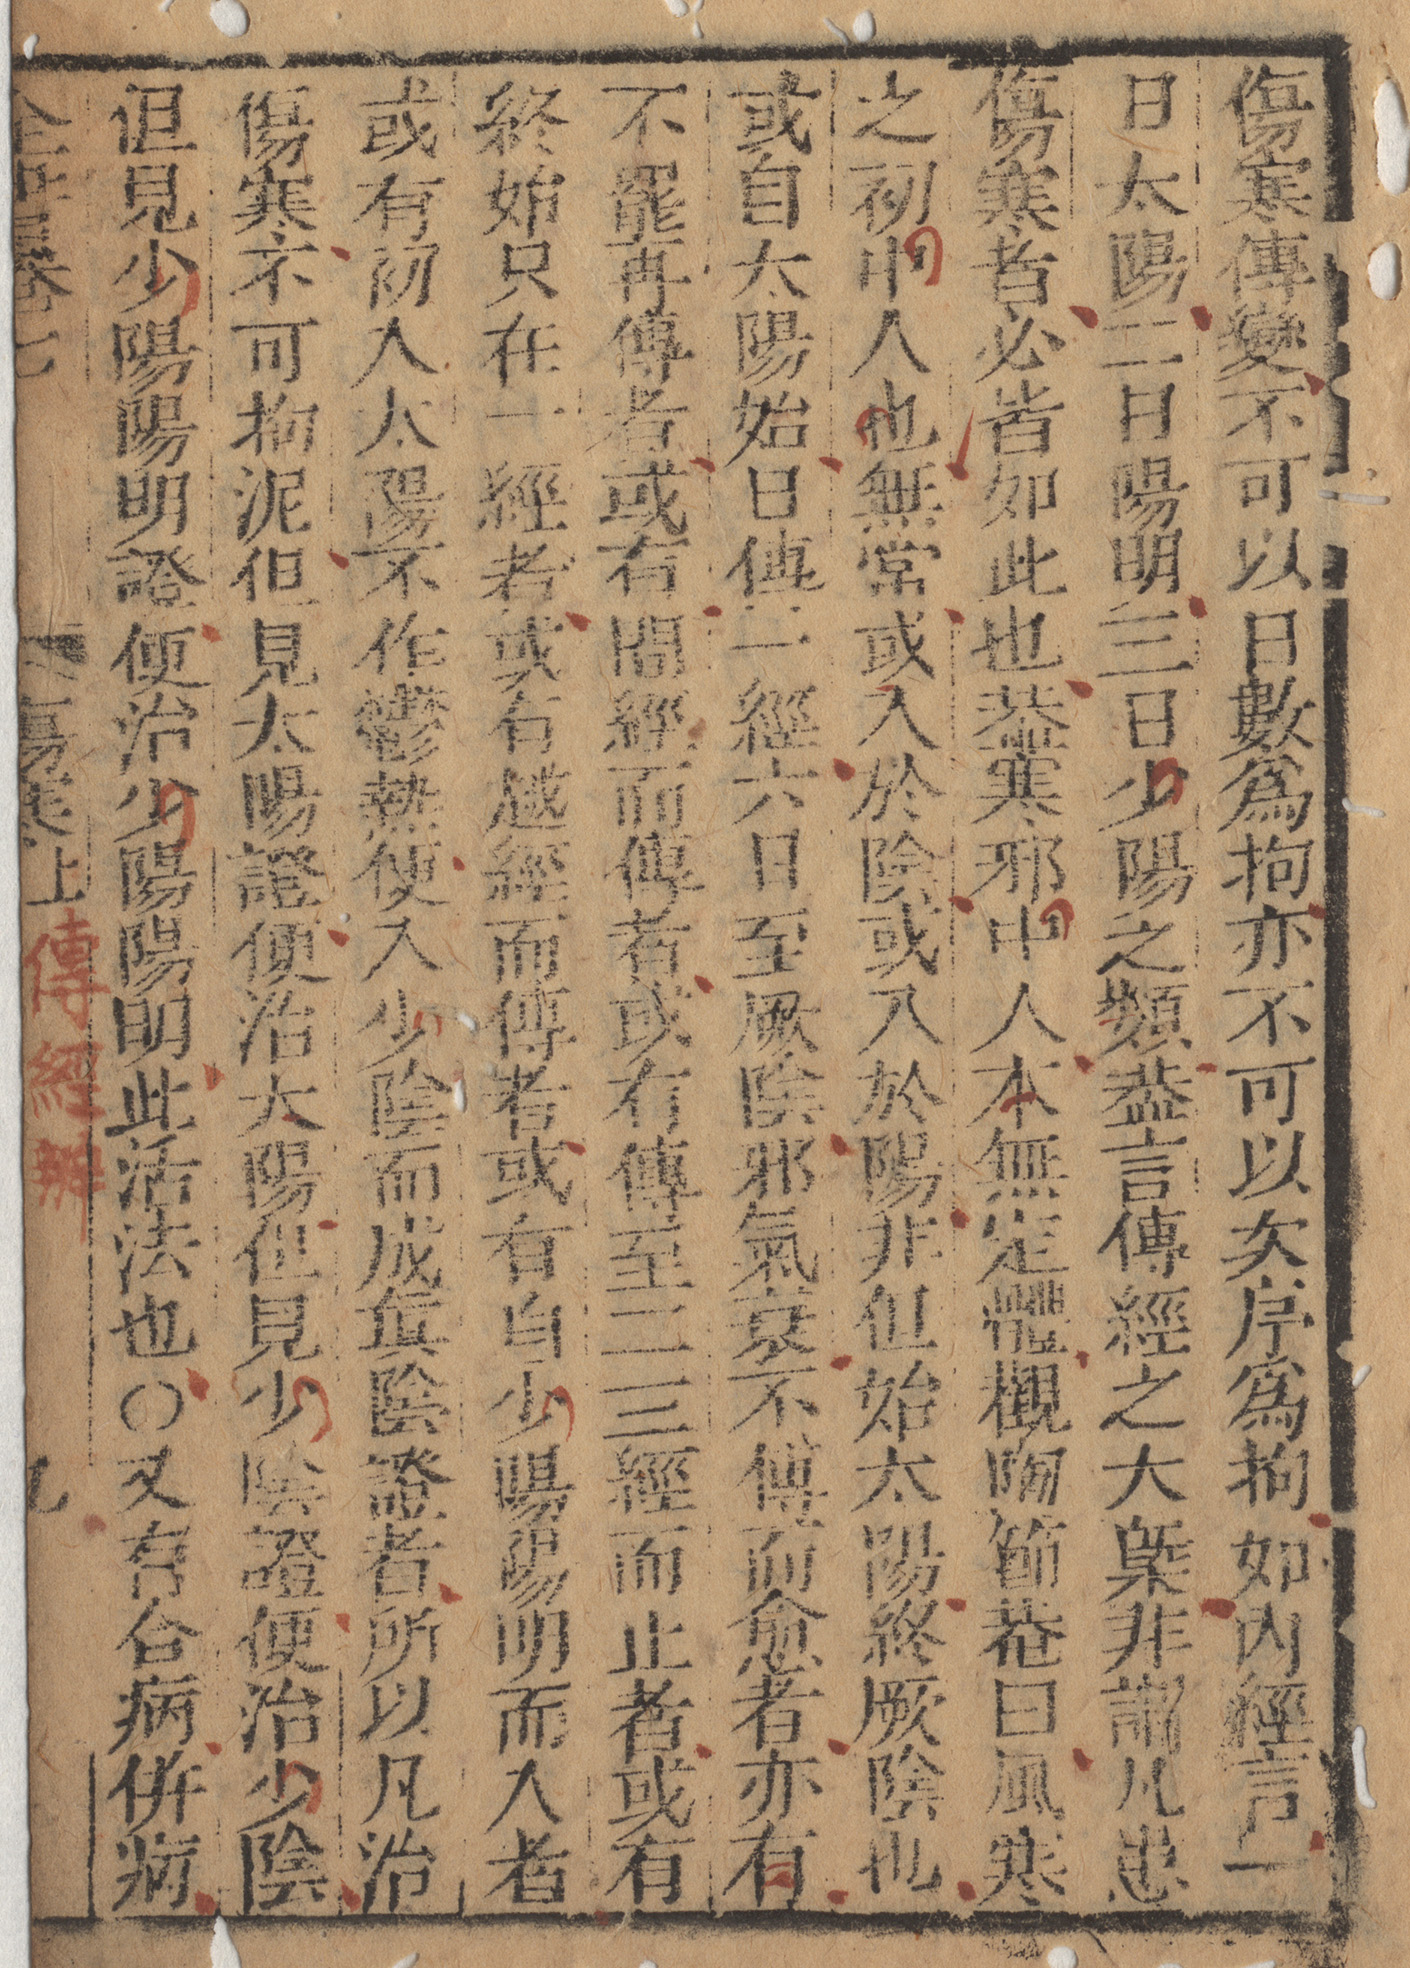 傷寒傳變不可以日數為拘亦不可以次序為拘如內經言一
日太陽二日陽明三日少陽之類蓋言傳經之大槩非謂凡患
傷寒者必皆如此也蓋寒邪中人本無定體觀陶節菴曰風寒
之初中人也無常或入於陰或入於陽非但始太陽終厥陰也
或自太陽始日傳一經六日至厥陰邪氣衰不傳而愈者亦有
不罷再傳者或有間經而傳者或有傳至二三經而止者或有
終始只在一經者或有越經而傳者或有自少陽陽明而入者
或有初入太陽不作鬱熱便入少陰而成真陰證者所以凡治
傷寒不可拘泥但見太陽證便治太陽但見少陰證便治少陰
但見少陽陽明證便治少陽陽明此活法也○又有合病併病
傷寒上
傳經辨
九